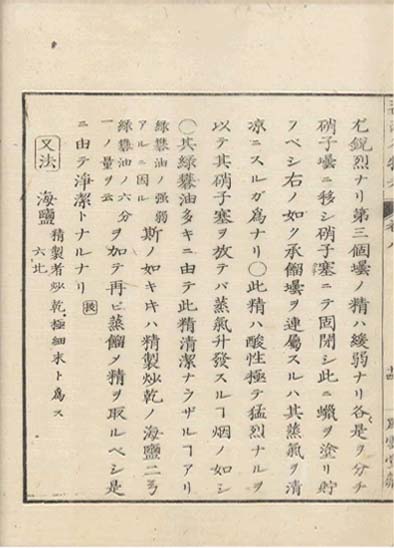 尤鋭烈ナリ第三個壜ノ精ハ緩弱ナリ各是ヲ分チ
硝子壜ニ移シ硝子塞ニテ固閉シ此ニ蝋ヲ塗リ貯
フベシ右ノ如ク承餾壜ヲ連屬スルハ其蒸氣ヲ清
凉ニスルガ為ナリ〇此精ハ酸性極テ猛烈ナルヲ
以テ其硝子塞ヲ放テバ蒸氣升發スルヿ烟ノ如シ
〇其緑礬油多キニ由テ此精清潔ナラザルヿアリ
緑礬油ノ強弱
アルニ因ル
斯ノ如キ𪜈ハ精製炒乾ノ海鹽二ヲ
緑礬油ノ六分
一ノ量ヲ云
ヲ加テ再ビ蒸餾メ精ヲ取ルベシ是
ニ由テ淨潔トナルナリ
又法
海鹽
精製者炒乾極細末ト為ス
六比